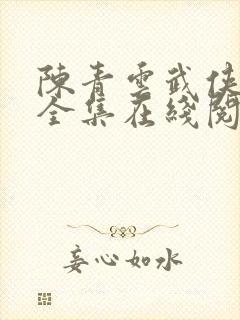 陳青雲武俠
全集在綫閱
妄心如水